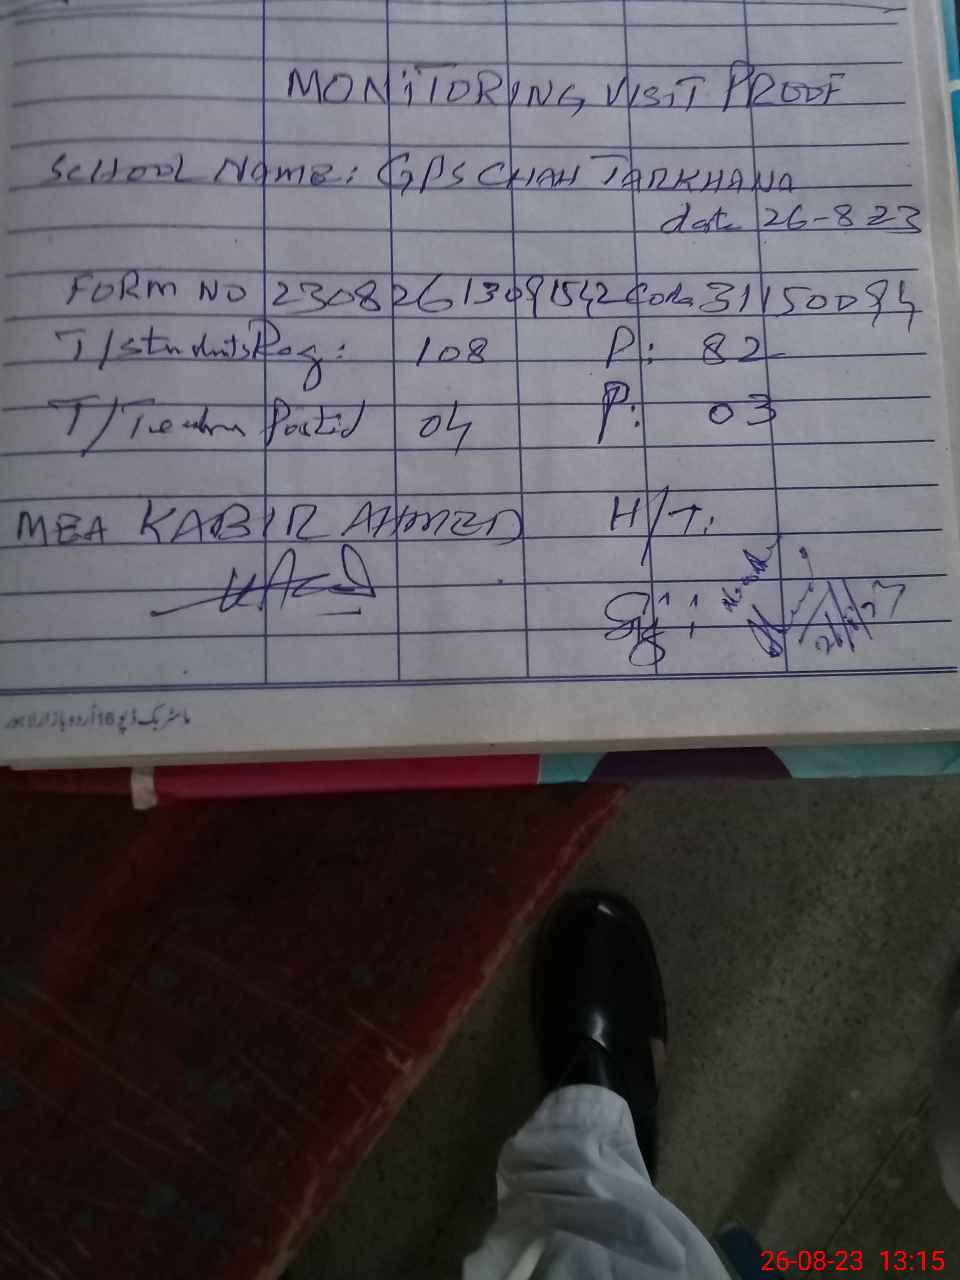 MONiTORING ViSiT PROOF
SCHOOL Name: GPS CHAH TARKHANA
date 26-8 23
FORM NO 23082613091542 Code 31150094
T/students Reg: 108 P: 82
T/Teachers Posted 04 P: 03
MEA KABIR AHMED H/T:
26-08-23 13:15